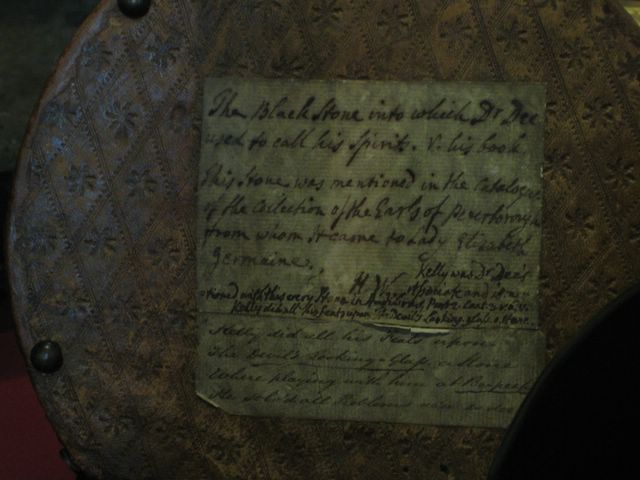 The Black Stone into which Dr Dee
used to call his Spirits. v. his book
This Stone was mentioned in the Catalogue
of the Collection of the Earls of Peterborough
from whom it came to Lady Elizabeth
Germaine.
H W
Kelly was Dr Dee's
Associate and is men
tioned with this very Stone in Hudibras, Part 2. Canto 3. v.
Kelly did all his feats upon The Devil's Looking-glass, a Stone.
Kelly did all his Feats upon
The Devil's Looking-Glass, a Stone
Where playing with him at Bo-peep
He solv'd all Problems ne'er so deep